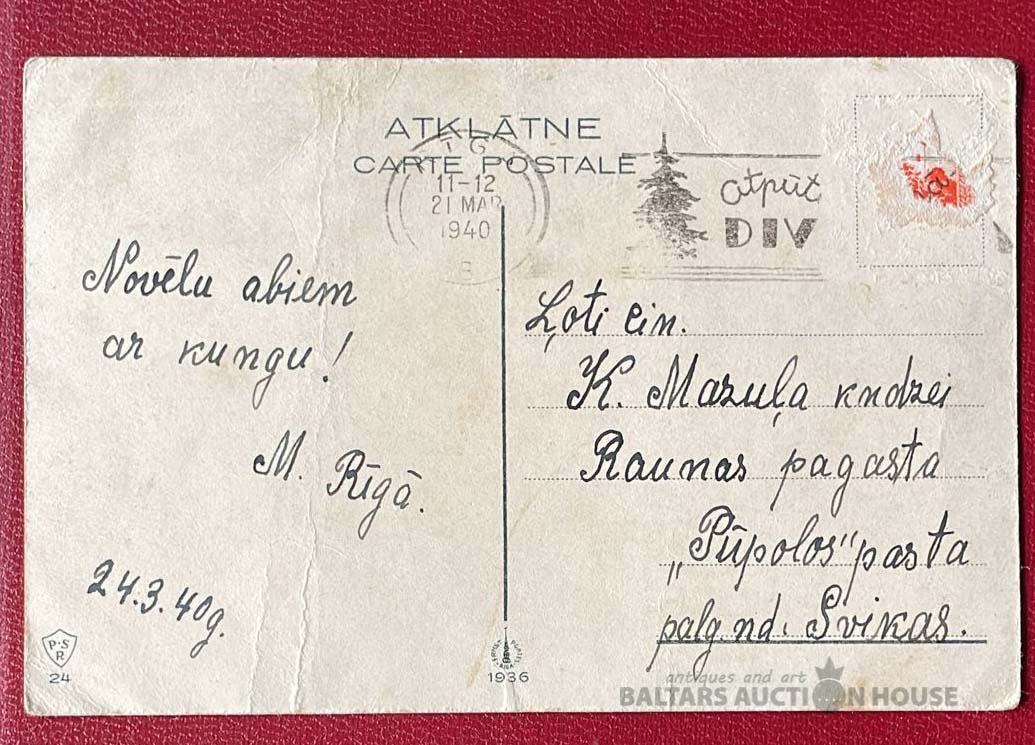 ATKLĀTNE
CARTE POSTALE
11-12
21 MAR
1940
B
atpūt
DIV
Novēlu abiem
ar kungu!
M. Rīgā.
24.3.40g.
Ļoti cin.
K. Mazuļa kndzei
Raunas pagasta
„Pūpolos" pasta
palg. nd. Svikas.
P·S
R
24
1936
antiques and art
BALTARS AUCTION HOUSE